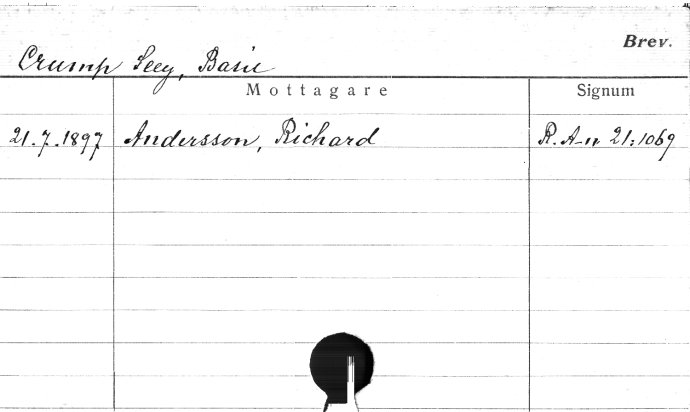 Brev.
Crump Seey, Basil
Mottagare Signum
21.7.1897 Andersson, Richard R. A-n 21:1069